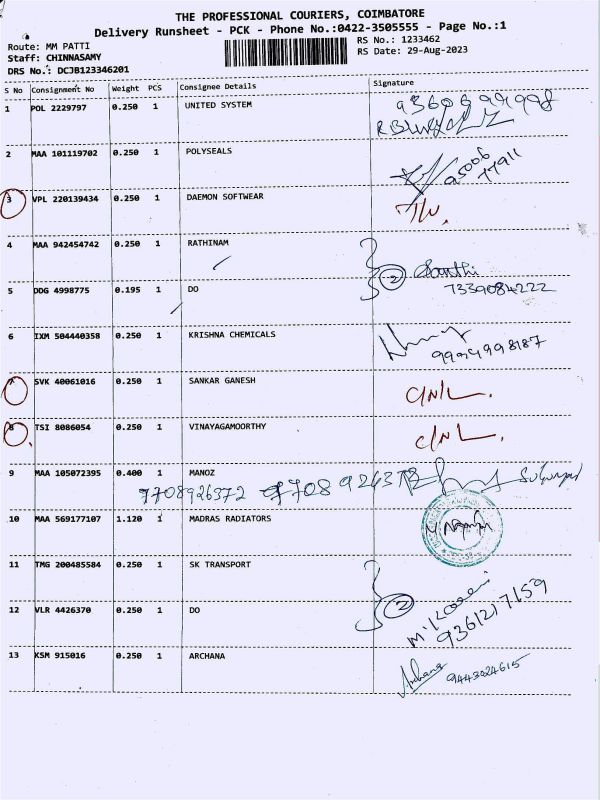 THE PROFESSIONAL COURIERS, COIMBATORE
Delivery Runsheet - PCK - Phone No.:0422-3505555 - Page No.:1
Route: MM PATTI
RS No.: 1233462
Staff: CHINNASAMY
RS Date: 29-Aug-2023
DRS No.: DCJB123346201
S No Consignment No Weight PCS Consignee Details Signature
1 POL 2229797 0.250 1 UNITED SYSTEM
2 MAA 101119702 0.250 1 POLYSEALS
95006
77911
3 VPL 220139434 0.250 1 DAEMON SOFTWEAR
4 MAA 942454742 0.250 1 RATHINAM
2 Santhi
5 DDG 4998775 0.195 1 DO 7339084222
6 IXM 504440358 0.250 1 KRISHNA CHEMICALS
9994998187
7 SVK 40061016 0.250 1 SANKAR GANESH C/N/L.
8 TSI 8086054 0.250 1 VINAYAGAMOORTHY C/N/L.
9 MAA 105072395 0.400 1 MANOZ
9708926372 9708926372
10 MAA 569177107 1.120 1 MADRAS RADIATORS
11 TMG 200485584 0.250 1 SK TRANSPORT
2
12 VLR 4426370 0.250 1 DO
9361217159
13 KSM 915016 0.250 1 ARCHANA
Archana 9443024615